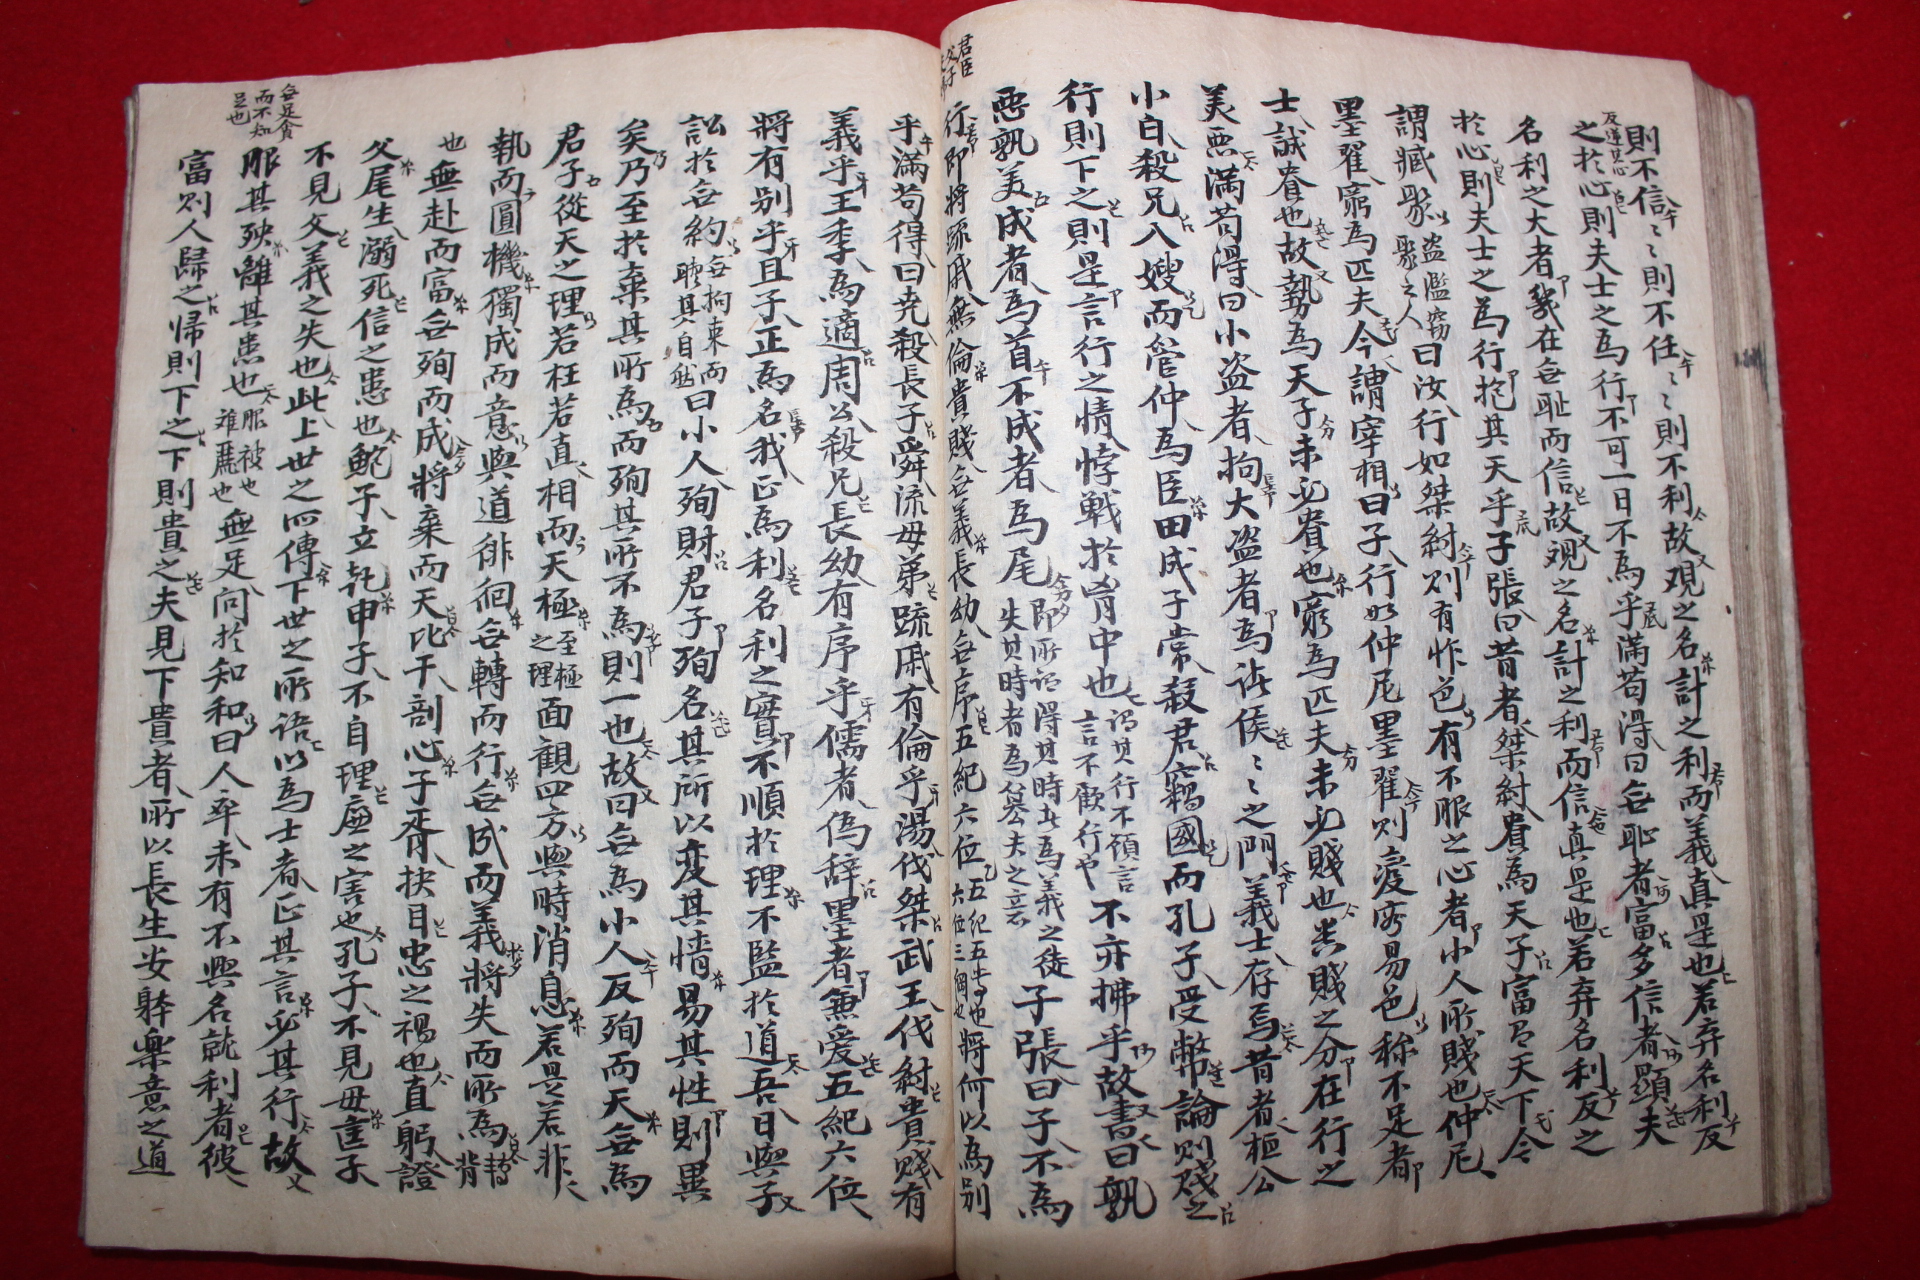 君臣
父子
則不信〻則不任〻則不利故覌之名計之利而義真是也若弃名利反
反逆其心
之於心則夫士之為行不可一日不為乎滿苟得曰無恥者富多信者顯夫
名利之大者幾在無恥而信故覌之名計之利而信真是也若弃名利反之
於心則夫士之為行抱其天乎子張曰昔者桀紂貴為天子富有天下今
謂臧聚盗濫竊聚之人曰汝行如桀紂則有怍色有不服之心者小人所賤也仲尼
墨翟窮為匹夫今謂宰相曰子行如仲尼墨翟則变容易色称不足者
士誠貴也故勢為天子未必貴也窮為匹夫未必賤也貴賤之分在行之
美悪滿苟得曰小盗者拘大盗者為诸侯〻之門義士存焉昔者桓公
小白殺兄入嫂而管仲為臣田成子常殺君竊國而孔子受幣論則賤之
行則下之則是言行之情悖戰於胷中也謂其行不顧言言不顧行也不亦拂乎故書曰孰
悪孰美成者為首不成者為尾即所謂得其時者為義之徒失其時者為篡夫之意子張曰子不為
行即將疏戚無倫貴賤無義長幼無序五紀六位五紀五常也六位三綱也將何以為别
乎滿苟得曰尭殺長子舜流母弟疏戚有倫乎湯伐桀武王伐紂貴賤有
義乎王季為適周公殺兄長幼有序乎儒者偽辞墨者兼爱五紀六位
將有别乎且子正為名我正為利名利之實不順於理不監於道吾日與子
訟於無約無拘束而聴其自然曰小人殉財君子殉名其所以变其情易其性則異
矣乃至於棄其所為而殉其所不為則一也故曰無為小人反殉而天無為
君子從天之理若枉若直相而天極至極之理面觀四方與時消息若是若非
執而圓機獨成而意與道徘徊無轉而行無成而義將失而所為轉背
也無赴而富無殉而成將棄而天比干剖心子胥抉目忠之禍也直躬證
父尾生溺死信之患也鮑子立乾申子不自理廉之害也孔子不見母匡子
不見父義之失也此上世之所傳下世之所語以為士者正其言必其行故
服其殃離其患也服被也離罹也無足問於知和曰人卒未有不興名就利者彼
無足貪而不知足也
富則人歸之帰則下之下則貴之夫見下貴者所以長生安躰樂意之道